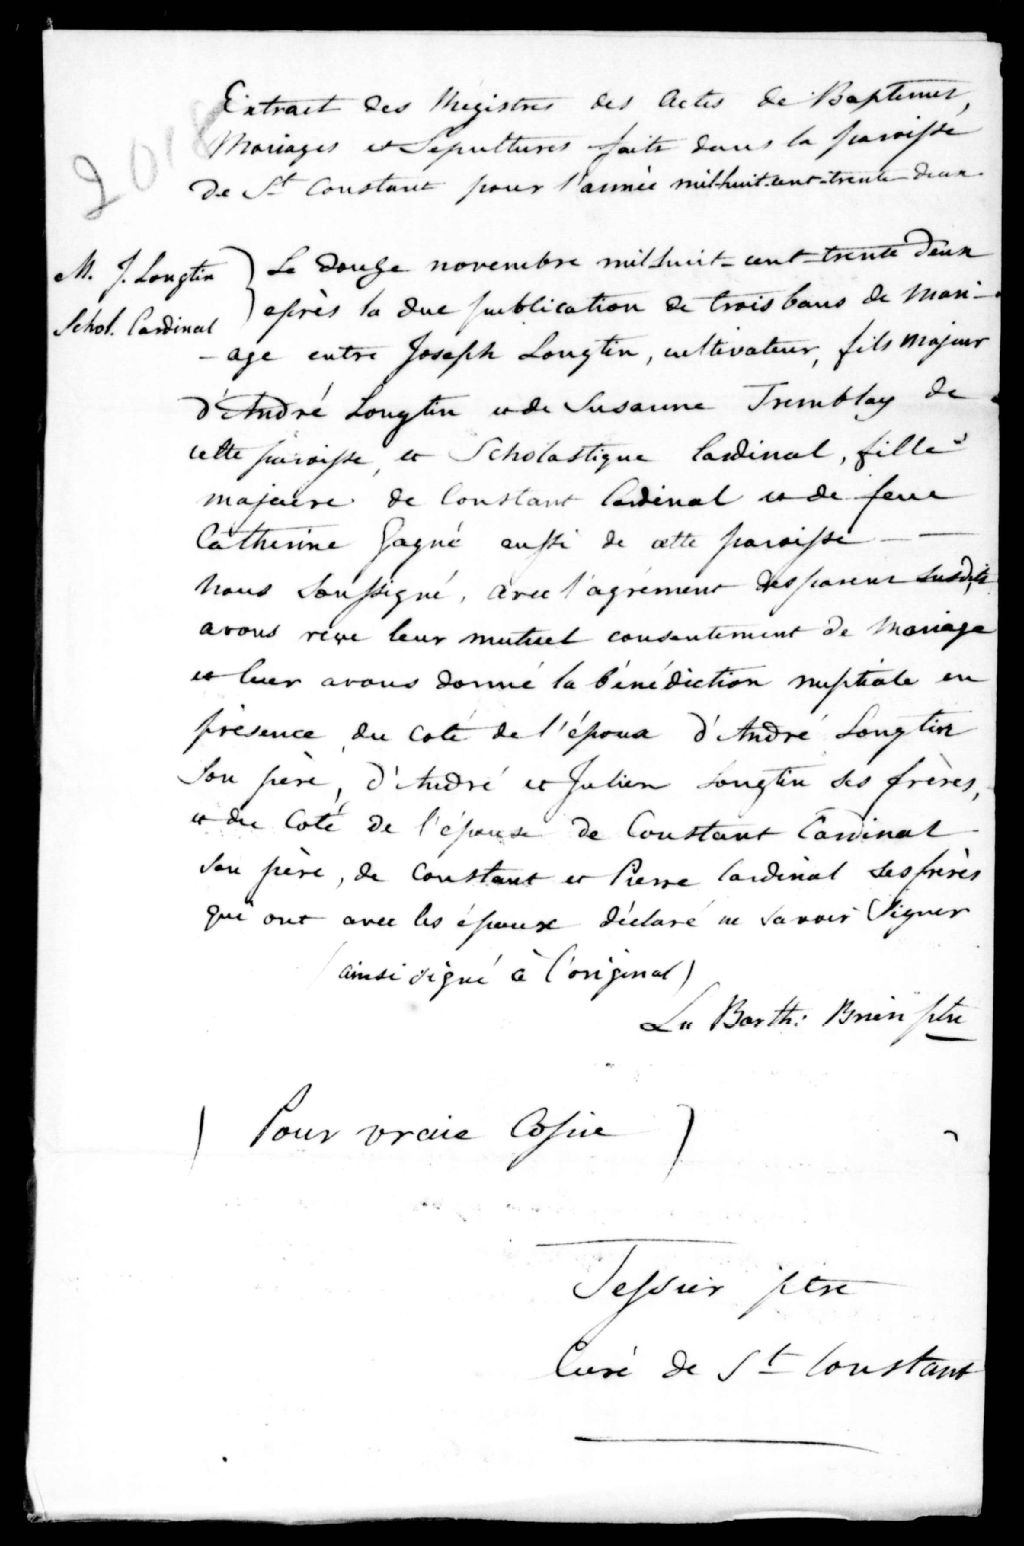 2018
Extract des Régistres des Actes de Baptemes,
Mariages et Sépultures faits dans la paroisse
de St Constant pour l'année mil-huit-cent-trente-deux.
M. J. Longtin
Schol. Cardinal
Le douze novembre mil-huit-cent-trente deux
après la due publication de trois bans de mari-
-age entre Joseph Longtin, cultivateur, fils majeur
d'André Longtin et de Susanne Tremblay de
cette paroisse, et Scholastique Cardinal, fille
majeure de Constant Cardinal et de feue
Catherine Gagné aussi de cette paroisse - -
nous soussigné, avec l'agrément des parens susdits
avons reçu leur mutuel consentement de mariage
et leur avons donné la bénédiction nuptiale en
présence du coté de l'époux d'André Longtin
son père, d'André et Julien Longtin ses frères,
et du coté de l'épouse de Constant Cardinal
son père, de Constant et Pierre Cardinal ses frères
qui ont avec les époux déclaré ne savoir signer
(ainsi signé à l'original)
Ls Barth: Brien ptre
( Pour vraie Copie )
Tessier ptre
Curé de St Constant